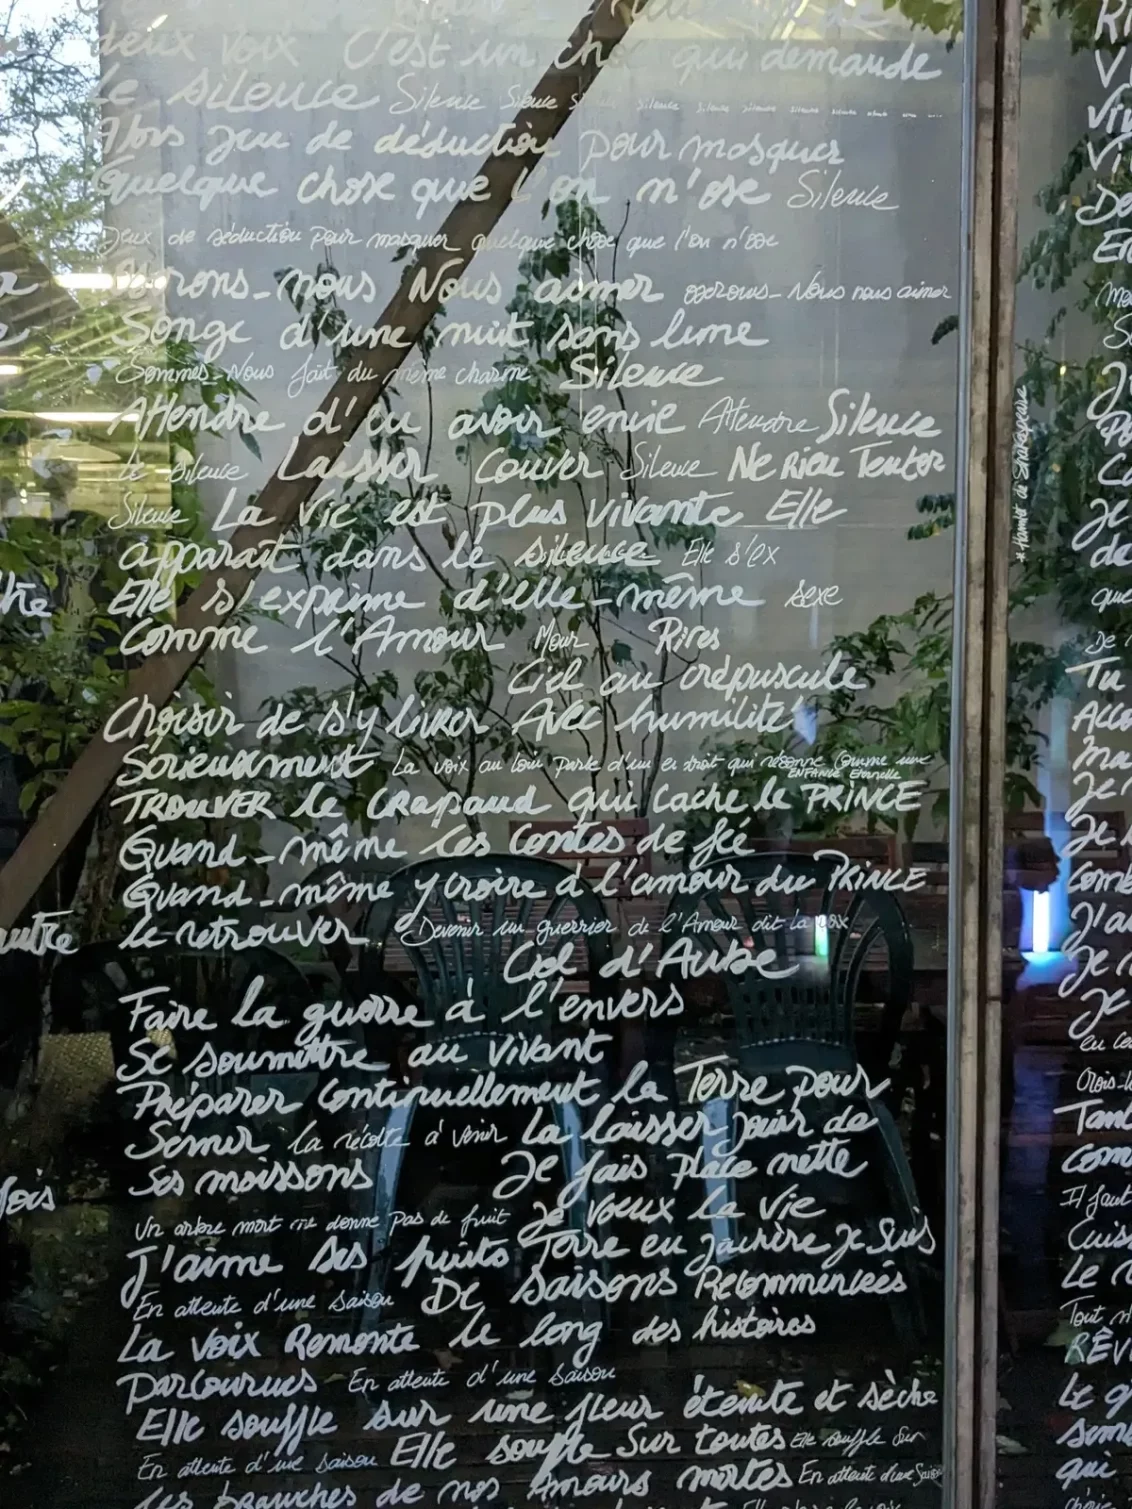 deux voix C'est un choc qui demande
Le silence Silence Silence Silence silence silence silence silence silence
Alors jeu de déduction pour masquer
Quelque chose que l'on n'ose Silence
Jeux de séduction pour masquer quelque chose que l'on n'ose
Oserons-nous Nous aimer oserons-Nous nous aimer
Songe d'une nuit sans lune
Sommes-Nous fait du même charme Silence
Attendre d'en avoir envie Attendre Silence
Le silence Laisser Couver Silence Ne Rien Tenter
Silence La Vie est plus vivante Elle
apparait dans le silence Elle s'ex
Elle s'exprime d'elle-même sexe
Comme l'Amour Mour Rires
Ciel au crépuscule
Choisir de s'y livrer Avec humilité
Sérieusement La voix au loin parle d'un endroit qui résonne Comme une
ENFANCE Eternelle
TROUVER le CRapaud qui cache le PRINCE
Quand-même Les Contes de fée
Quand-même y croire à l'amour du PRINCE
le retrouver Devenir un guerrier de l'Amour dit la voix
Ciel d'Aube
Faire la guerre à l'envers
Se soumettre au vivant
Préparer continuellement la Terre pour
Semer la récolte à venir La laisser jouir de
Ses moissons Je fais place nette
Un arbre mort ne donne pas de fruit Je veux la vie
J'aime ses fruits Terre en jachère je Suis
En attente d'une saison De Saisons Recommencées
La voix Remonte le long des histoires
parcourues En attente d'une saison
Elle souffle sur une fleur éteinte et sèche
En attente d'une saison Elle souffle Sur toutes Elle souffle sur
les branches de nos Amours mortes En attente d'une Saison
* Hamlet de Shakespeare